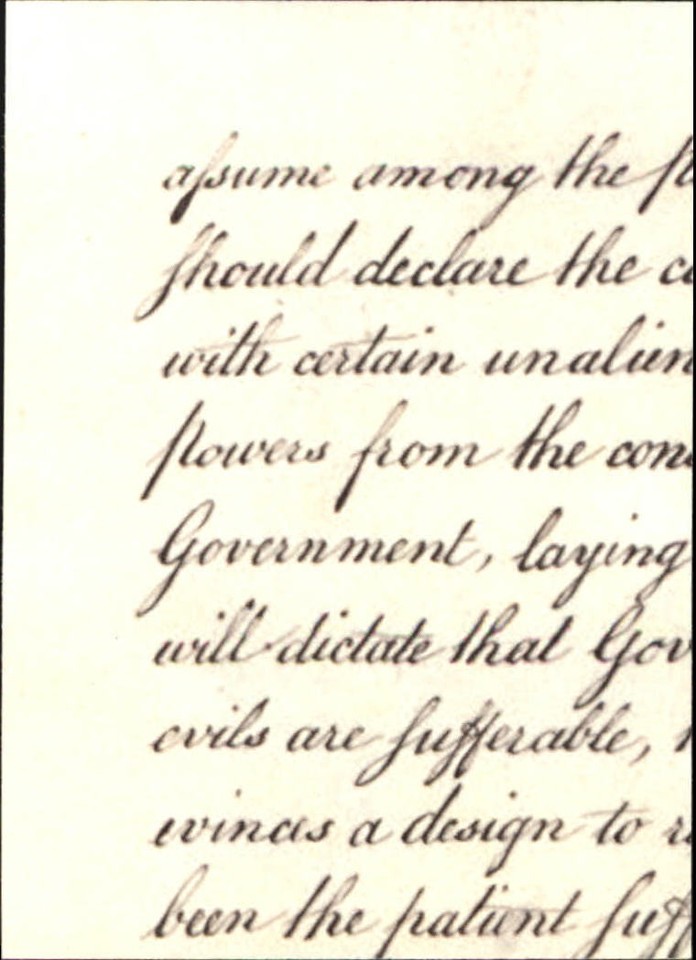 aſsume among the po
should declare the ca
with certain unalien
powers from the cons
Government, laying
will dictate that Gov
evils are sufferable,
evinces a design to re
been the patient suff